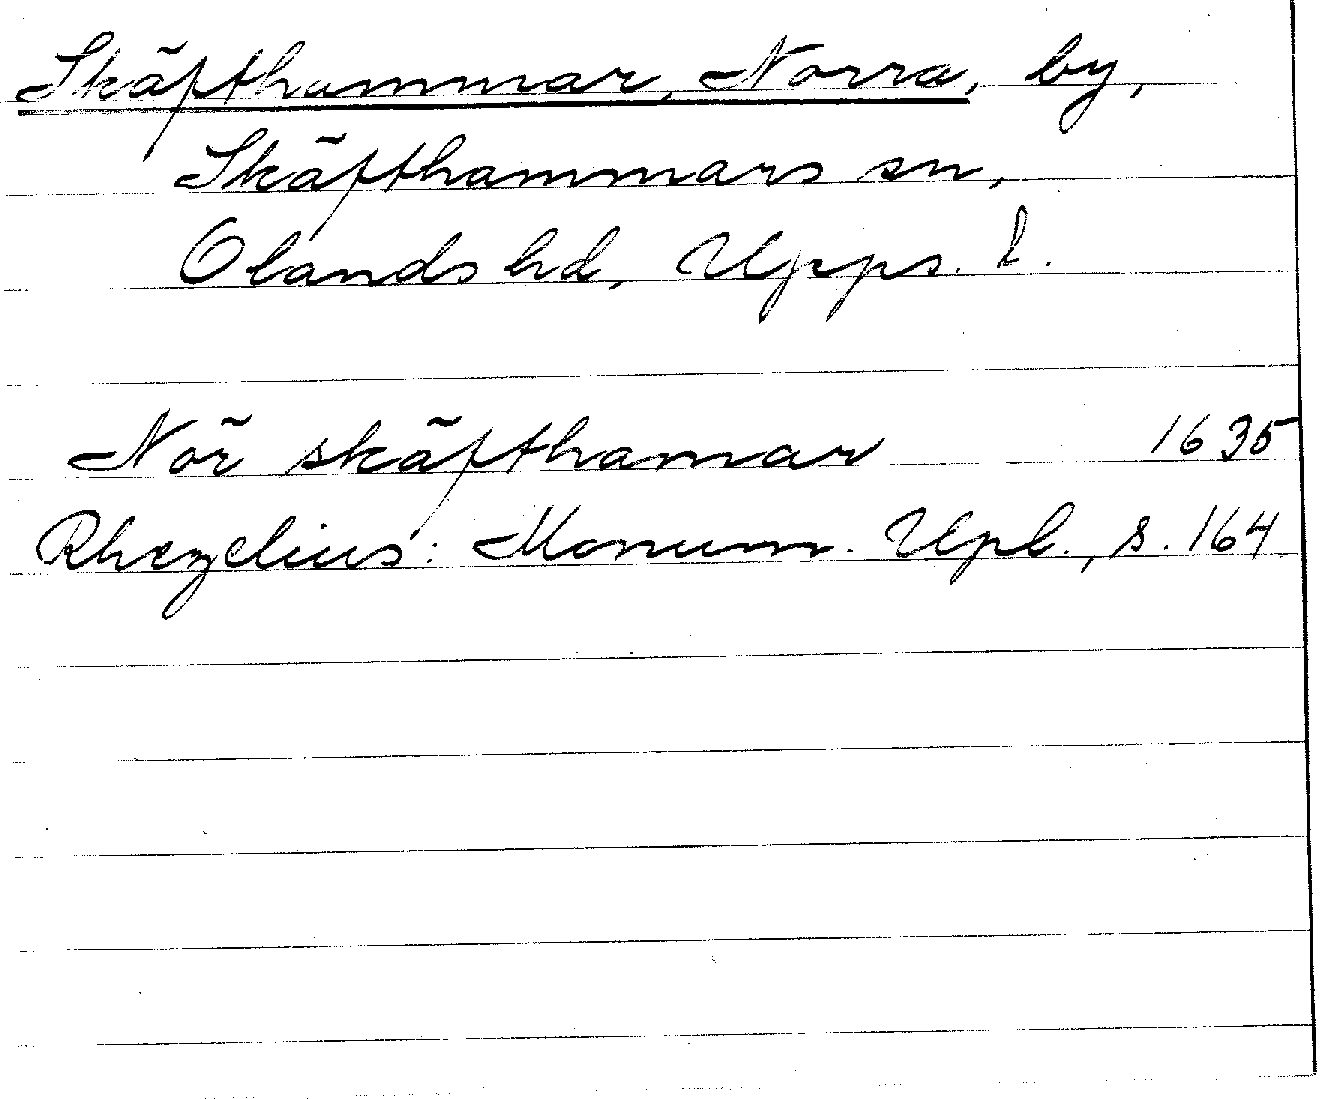 Skäfthammar, Norra, by,
Skäfthammars sn,
Olands hd, Upps. l.
Nör skäfthamar 1635
Rhezelius: Monum. Upl., s. 164